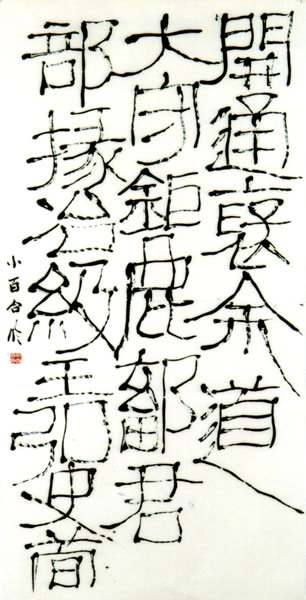 開通褒余道
大守鉅鹿鄐君
部掾治級王弘史荀
小百合臨